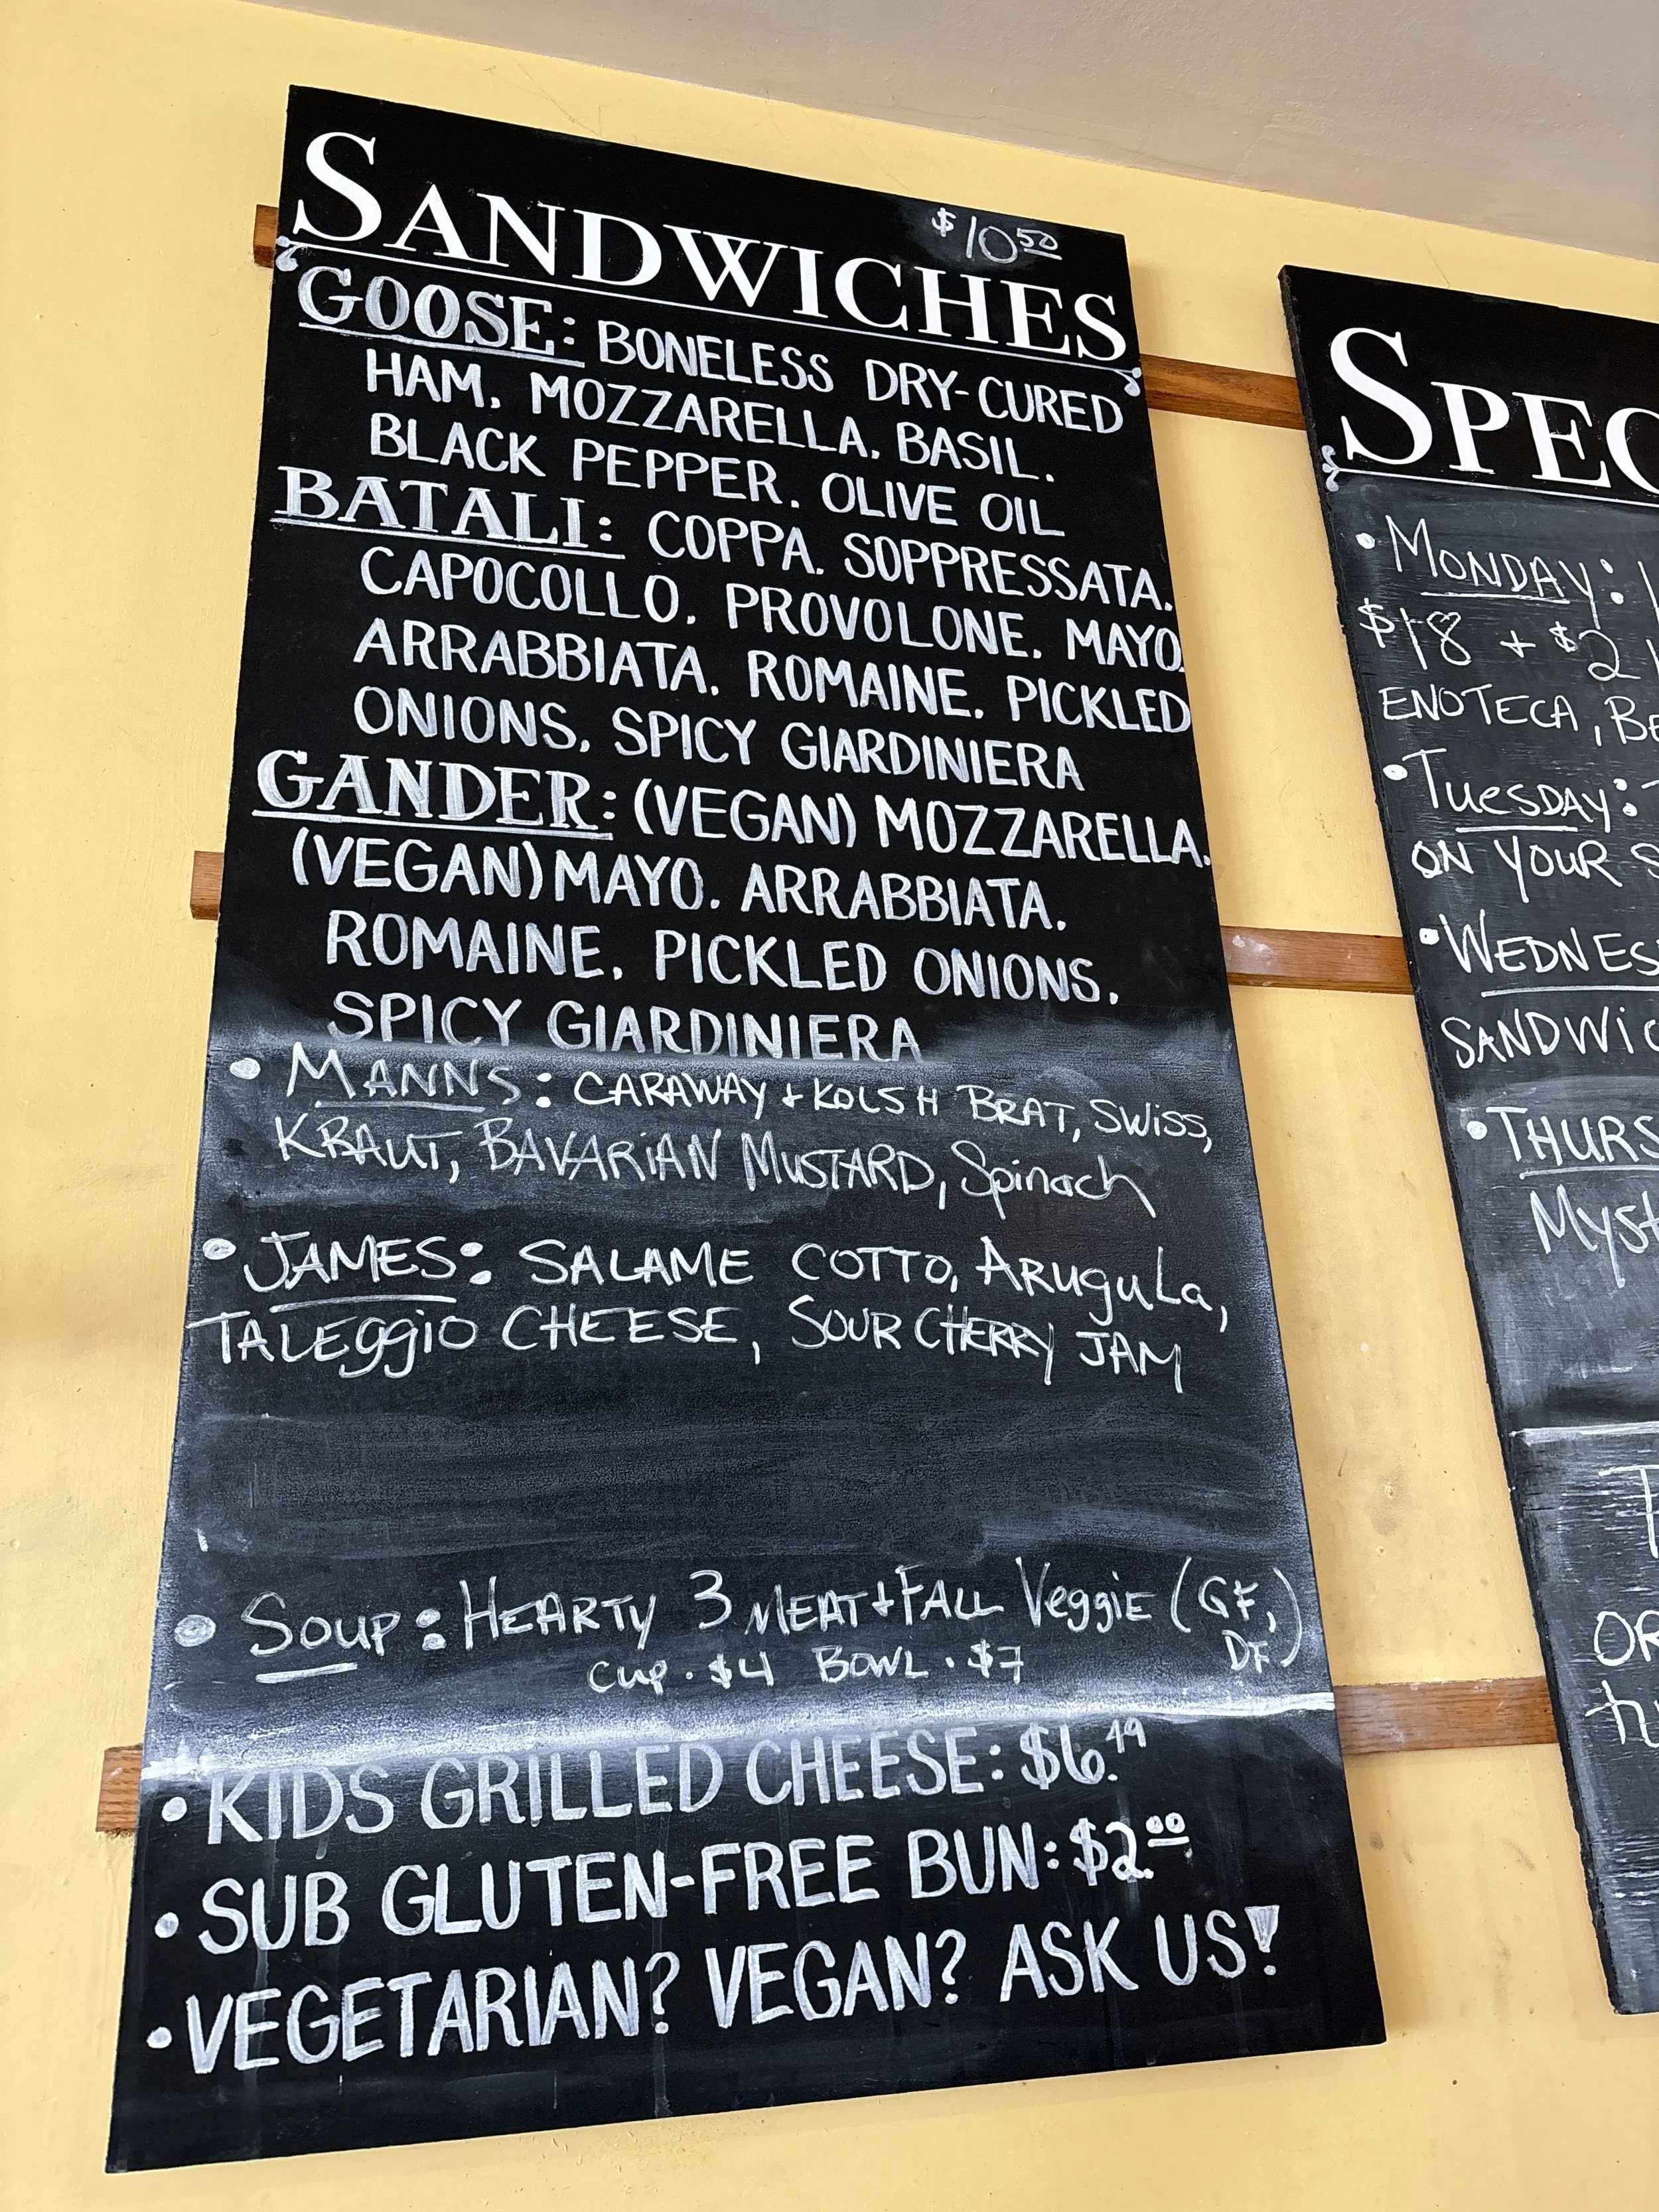 SANDWICHES $10.50
GOOSE: BONELESS DRY-CURED
HAM. MOZZARELLA. BASIL.
BLACK PEPPER. OLIVE OIL
BATALI: COPPA. SOPPRESSATA.
CAPOCOLLO. PROVOLONE. MAYO.
ARRABBIATA. ROMAINE. PICKLED
ONIONS. SPICY GIARDINIERA
GANDER: (VEGAN) MOZZARELLA.
(VEGAN) MAYO. ARRABBIATA.
ROMAINE. PICKLED ONIONS.
SPICY GIARDINIERA
• MANNS: CARAWAY + KOLSH BRAT, SWISS,
KRAUT, BAVARIAN MUSTARD, Spinach
• JAMES: SALAME COTTO, ARuguLa,
TALEggiO CHEESE, SOUR CHERRY JAM
• SOUP: HEARTY 3 MEAT + FALL VeggiE (GF,
DF)
CUP • $4 BOWL • $7
• KIDS GRILLED CHEESE: $6.49
• SUB GLUTEN-FREE BUN: $2.00
• VEGETARIAN? VEGAN? ASK US!
SPEC
• MONDAY:
$18 + $2
ENOTECA, BE
• TUESDAY:
ON YOUR S
• WEDNES
SANDWIC
• THURS
MYST
OR